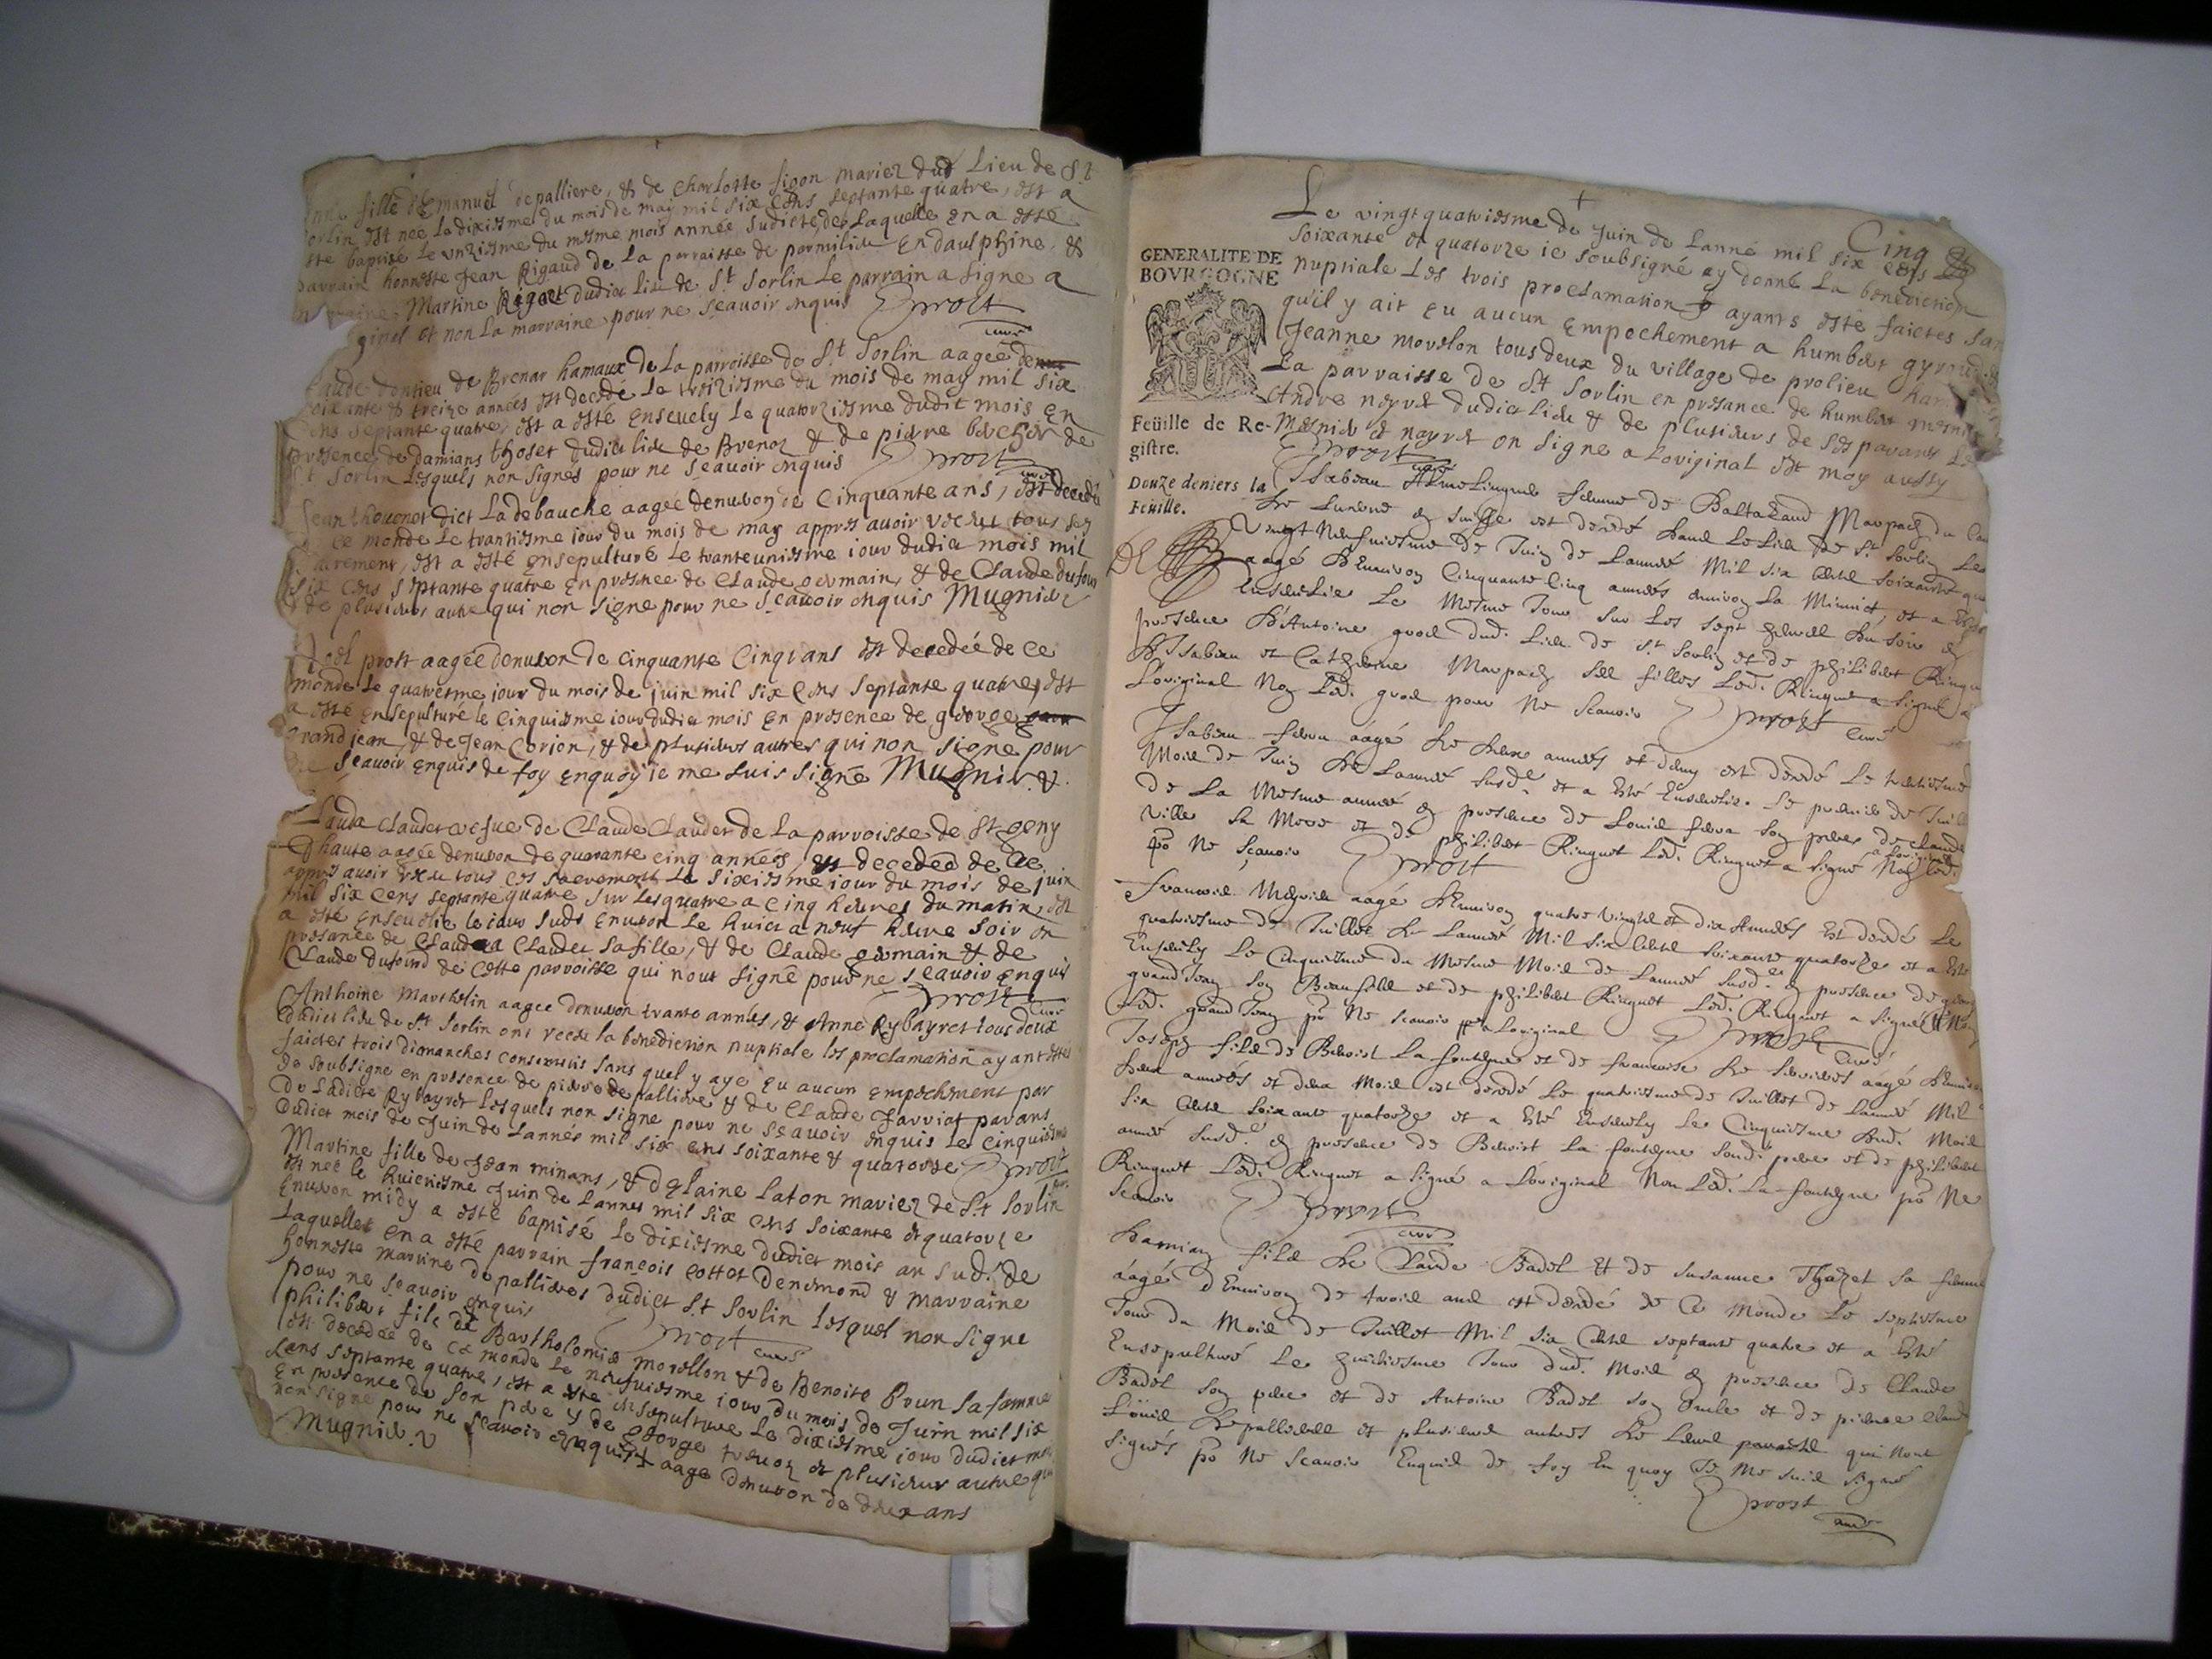 fille d'Emanuel depalliere, & de Charlotte sigon mariez dud Lieu de St
sorlin est nee le dixiesme du mois de may mil six cens septante quatre, est a
este baptise le unziesme du mesme mois année sudicte, de laquelle en a este
parrain honneste Jean Rigaud de la parroisse de parmilieu En daulphine, &
marraine Martine Rigaet dudict lieu de St Sorlin Le parrain a signe a
ginel et non La marraine pour ne scauoir enquis prost
curé
Claude dontieu de Brenar hamaux de La parroisse de St Sorlin aagée
soixante & treize années est decedé le treiziesme du mois de may mil six
cens septante quatre, est a esté Enseuely le quatorziesme dudit mois en
presence de damians thoset dudict lieu de Brenoz & de pierre de
St Sorlin Lesquels non signes pour ne scauoir enquis prost
curé
Jean thouenot dict Ladebauche aagée denuiron de Cinquante ans, est decedé
ce monde Le trantiesme iour du mois de may appres auoir receu tous ses
sacrement, est a esté Ensepulturé Le tranteuniesme iour dudict mois mil
six cens septante quatre en presence de Claude germain, & de Claude dufour
& de plusieurs autre qui non signe pour ne scauoir enquis Mugnier
Noel prost aagée denuiron de cinquante Cinq ans est decedée de ce
monde Le quatriesme iour du mois de juin mil six Cens Septante quatre, est
a esté Ensepulturé le Cinquiesme iour dudict mois En presence de george
grand jean, & de Jean Corion, & de plusieurs autres qui non signe pour
ne scauoir enquis de foy enquoy ie me suis signé Mugnier
Claude Claudet vefue de Claude Claudet de La parroisse de St geny
d'haute aagée denuiron de quarante cinq années, est decedée de ce
appres auoir receu tous ces sacrements Le sixiesme iour du mois de juin
mil six cens septante quatre sur les quatre a cinq heures du matin, est
a esté Enseuelie le iour sudt Enuiron Le huict a neuf heure soir en
presance de Claudaa Claudet sa fille, & de Claude germain & de
Claude dufourd de cette parroisse qui nont signé pour ne scauoir enquis
prost curé
Anthoine Marthelin aagee denuiron trante années, & Anne Rybayret tous deux
dudict lieu de St Sorlin ont receu la benediction nuptiale les proclamation ayant estes
faictes trois dimanches consecutifs sans quel y aye Eu aucun empechement par
de soubsigne en presence de pierre depalliere & de Claude Jarriat parans
de Ladicte Rybayret Lesquels non signe pour ne scauoir enquis Le cinquiesme
dudict mois de Juin de Lannés mil six cens soixante & quatorze prost
Martine fille de Jean minans, & d'Elaine Laton mariez de St Sorlin
est nee le huictiesme Juin de Lannes mil six cens soixante & quatorze
Enuiron midy a este baptisé Le dixiesme dudict mois an sud. de
laquellet en a esté parrain françois cottet & marraine
honneste martine depallieres dudict St Sorlin Lesquel non signe
pour ne scauoir enquis prost curé
philibert fils de Bartholomie morellon & de Benoite Brun sa femme
est decedée de ce monde Le neufuiesme iour du mois de Juin mil six
cens septante quatre, est a este ensepulture Le dixiesme iour dudict mois
En presence de son pere & de george & plusieur autre qui
non signe pour ne scauoir enquis aage denuiron de deux ans
Mugnier
Cinq
Le vingt quatriesme de juin de Lanné mil six cens
soixante & quatorze ie soubsigné ay donné La benediction
nuptiale Les trois proclamation ayants este faictes san
qu'il y ait eu aucun Empechement a humbert gyroud
Jeanne morelon tous deux du village de prolieu ham
La parroisse de St Sorlin en presance de humbert
Andre neyret dudict lieu & de plusieurs de ses parans Le
Mesnier & neyret on signe a Loriginal est moy aussy
prost curé
GENERALITE DE
BOVRGOGNE
Feüille de Re-
gistre.
Douze deniers la
Feüille.
Isabeau femme de Baltazard Marpach du
de Lucerne en suisse est decedé dans Le Lieu de St Sorlin Le
vingt neufuiesme de Juin de Lanneé Mil six cents soixante qua
aagé denuiron Cinquante Cinq années enuiron La Minuict, et a esté
Enseuelie Le Mesme Jour sur Les sept heures du soir en
presence d'Antoine grod dud. Lieu de St Sorlin et de philibert Ringuet
d'Isabeau et Catherine Marpach ses filles Led. Ringuet a signé a
Loriginal Non Led. grod pour Ne scauoir prost curé
Isabeau aagé de deux années et demy est decedé Le trentiesme
Mois de Juin de Lanneé susde. et a esté Enseuelie Le premier de Juillet
de La Mesme anneé en presence de Louis son pere de Claude
ville sa Mere et de philibert Ringuet Led. Ringuet a signé a Loriginal Non Led.
po Ne scauoir prost
francois Megnier aagé d'Enuiron quatre Vingts et dix Années Est decedé Le
quatriesme de Juillet de Lanneé Mil six Cents soixante quatorze et a Esté
Enseuely Le Cinquiesme du Mesme Mois de Lanneé susd.e en presence de george
grand Jean son Beaufils et de philibert Ringuet Led. Ringuet a signé et Non
Led. grand Jean po Ne scauoir a Loriginal prost curé
Joseph fils de Benoist La fontayne et de francoise de aagé d'Enuiron
deux années et deux Mois est decedé Le quatriesme de Juillet de Lanneé Mil
six Cents soixante quatorze et a Esté Enseuely Le Cinquiesme dud. Mois
anneé susd.e en presence de Benoist La fontayne sond. pere et de philibert
Ringuet Led. Ringuet a signé a Loriginal Non Led. La fontayne po Ne
scauoir prost curé
Damian fils de Claude Badel Et de susanne Thozet sa femme
aagé d'Enuiron de trois ans est decedé de Ce Monde Le septiesme
Jour du Mois de Juillet Mil six Cents septante quatre et a Esté
Ensepulturé Le huictiesme Jour dud. Mois en presence de Claude
Badel son pere et de Antoine Badel son oncle et de pierre
Louis depalliere et plusieurs autres de Leurs parents qui Nont
signés po Ne scauoir Enquis de foy En quoy Je Me suis signé
prost
curé